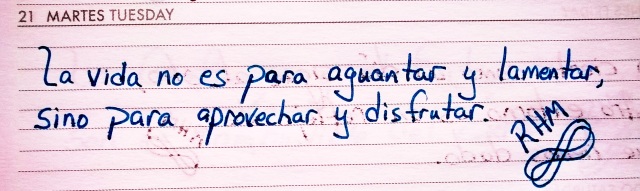 21 MARTES TUESDAY
La vida no es para aguantar y lamentar,
sino para aprovechar y disfrutar.
RHM